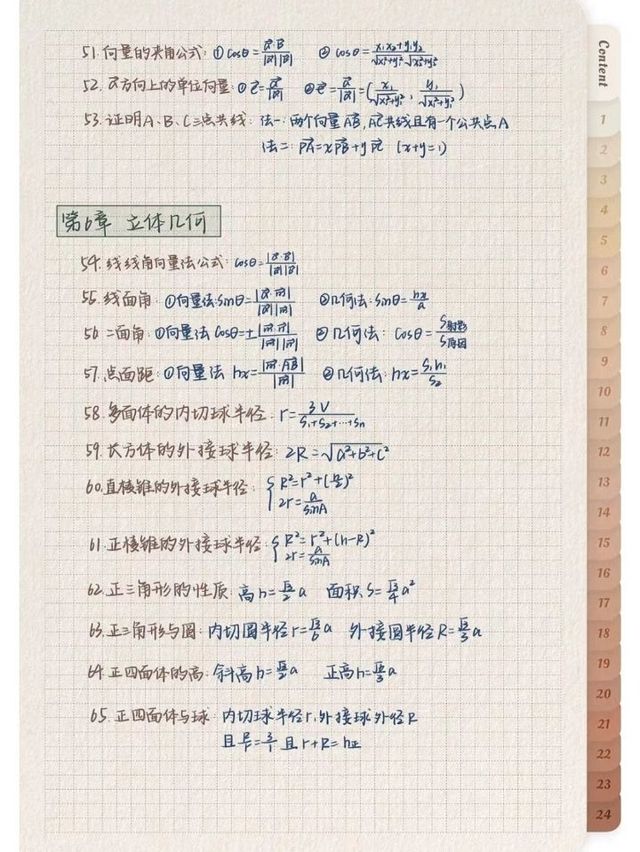 51. 向量的夹角公式: ① cosθ = a⃗·b⃗/|a⃗||b⃗| ② cosθ = x₁x₂+y₁y₂/√x₁²+y₁² √x₂²+y₂²
52. a⃗方向上的单位向量: ① e⃗ = a⃗/|a⃗| ② e⃗ = a⃗/|a⃗| = (x₁/√x₁²+y₁², y₁/√x₁²+y₁²)
53. 证明A、B、C三点共线: 法一: 两个向量AB⃗, AC⃗共线且有一个公共点A
法二: PA⃗ = xPB⃗ + yPC⃗ (x+y=1)
第6章 立体几何
54. 线线角向量法公式: cosθ = |a⃗·b⃗|/|a⃗||b⃗|
55. 线面角: ①向量法: sinθ = |a⃗·n⃗|/|a⃗||n⃗| ②几何法: sinθ = hx/a
56 二面角: ①向量法 cosθ = ± |m⃗·n⃗|/|m⃗||n⃗| ②几何法: cosθ = S射影/S原图
57. 点面距: ①向量法 hx = |n⃗·AB⃗|/|n⃗| ②几何法: hx = S₁h₁/S₂
58. 多面体的内切球半径: r = 3V/S₁+S₂+…+Sn
59. 长方体的外接球半径: 2R = √a²+b²+c²
60. 直棱锥的外接球半径: { R² = r² + (h/2)²
2r = a/sinA
61. 正棱锥的外接球半径: { R² = r² + (h-R)²
2r = a/sinA
62. 正三角形的性质: 高h = √3/2 a 面积S = √3/4 a²
63. 正三角形与圆: 内切圆半径r = √3/6 a 外接圆半径R = √3/3 a
64. 正四面体的高: 斜高h = √3/2 a 正高h = √6/3 a
65. 正四面体与球: 内切球半径r, 外接球外径R
且 R/r = 3/1 且 r+R = h正
Content
1
2
3
4
5
6
7
8
9
10
11
12
13
14
15
16
17
18
19
20
21
22
23
24